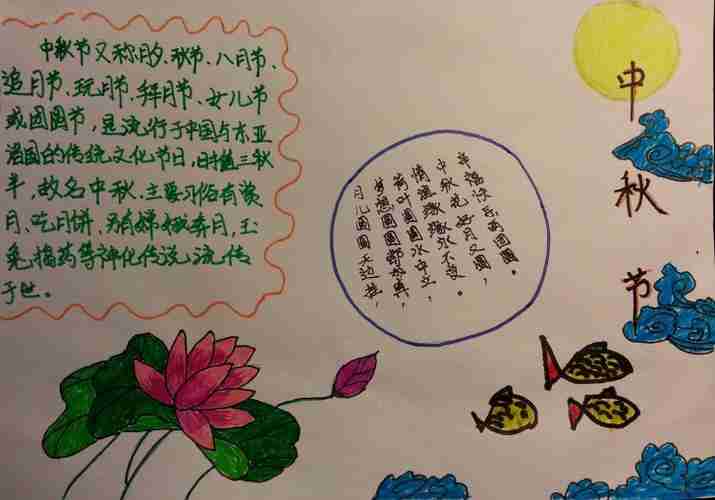 中秋节
中秋节又称月夕、秋节、八月节、
追月节、玩月节、拜月节、女儿节
或团圆节，是流行于中国与东亚
诸国的传统文化节日，时值三秋
半，故名中秋。主要习俗有赏
月、吃月饼，另有嫦娥奔月，玉
兔捣药等神化传说流传
于世。
月儿圆圆天边挂，
梦想圆圆都成真，
荷叶圆圆水中立，
永不变。
中秋花好月又圆，
幸福快乐两团圆。